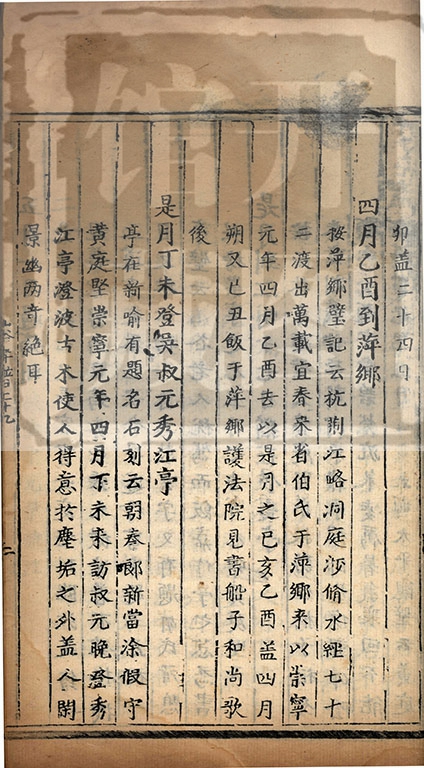 卯蓋二十四日
四月乙酉到萍鄉
按萍鄉壁記云杭荆江略洞庭涉脩水經七十
二渡出萬載宜春來省伯氏于萍鄉來以崇寧
元年四月乙酉去以是月之己亥乙酉蓋四月
朔又己丑飯于萍鄉護法院見書船子和尚歌
後
是月丁未登吳叔元秀江亭
亭在新喻有題名石刻云朝奉郎新當塗假守
黄庭堅崇寧元年四月丁未來訪叔元晚登秀
江亭澄波古木使人得意於塵垢之外蓋人閑
景幽两竒絕耳